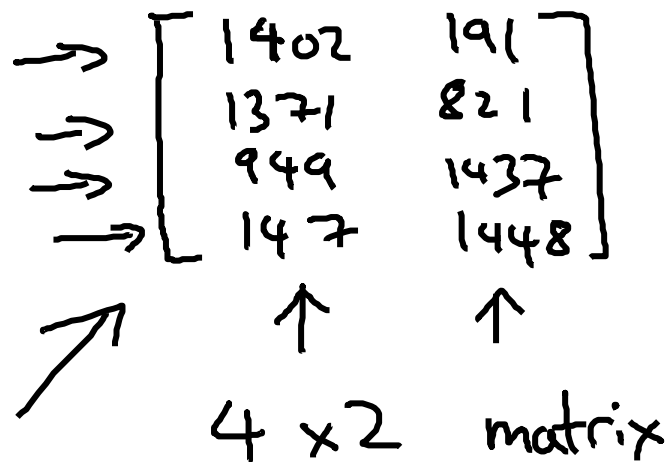 1402 191
1371 821
949 1437
147 1448
4 x 2 matrix